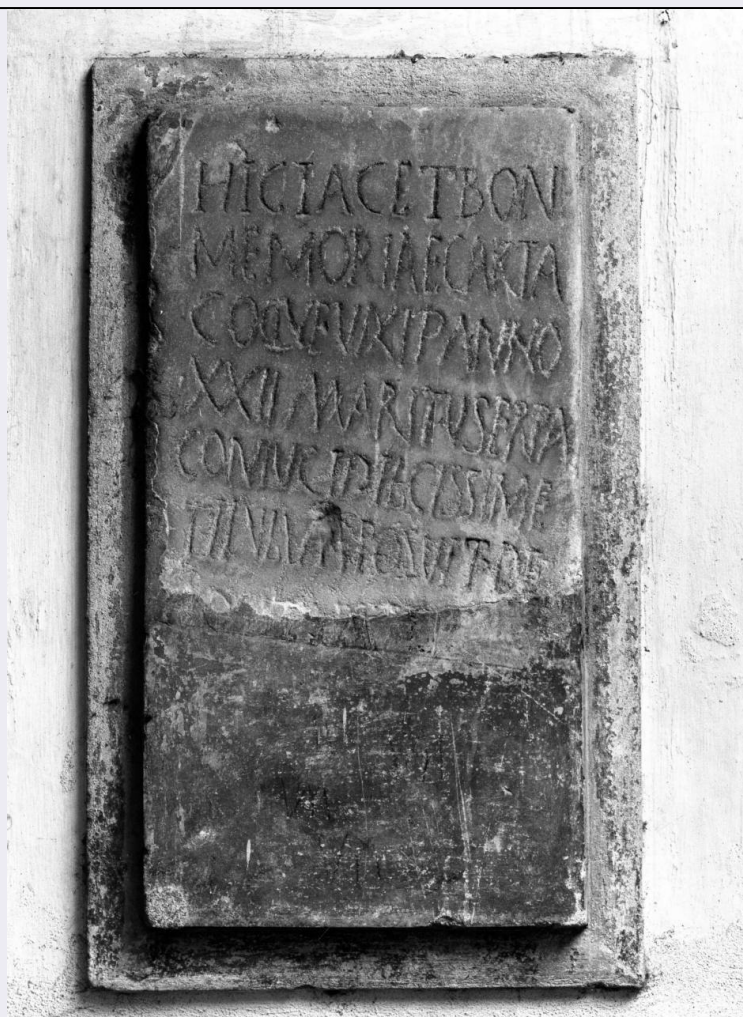 HIC IACET BON
MEMORIAE CARTA
COQVE VIXIT ANNO
XXII MARITUS ERTA
CONIVGI DVLCISSIME
TITVLVM POSVIT DE